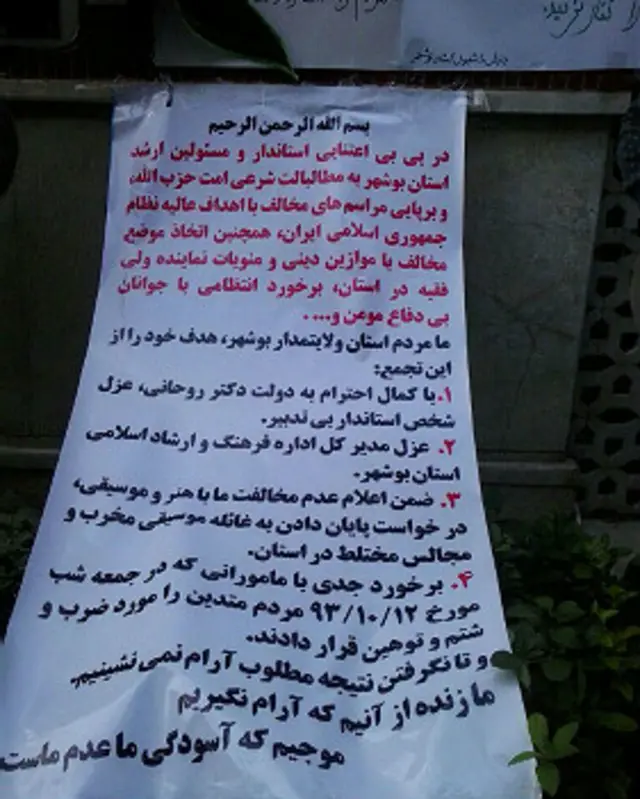 را
بسم الله الرحمن الرحیم
در پی بی اعتنایی استاندار و مسئولین ارشد
استان بوشهر به مطالبالت شرعی امت حزب الله،
و برپایی مراسم های مخالف با اهداف عالیه نظام
جمهوری اسلامی ایران، همچنین اتخاذ موضع
مخالف با موازین دینی و منویات نماینده ولی
فقیه در استان، برخورد انتظامی با جوانان
بی دفاع مومن و.... .
ما مردم استان ولایتمدار بوشهر، هدف خود را از
این تجمع:
۱. با کمال احترام به دولت دکتر روحانی، عزل
شخص استاندار بی تدبیر.
۲. عزل مدیر کل اداره فرهنگ و ارشاد اسلامی
استان بوشهر.
۳. ضمن اعلام عدم مخالفت ما با هنر و موسیقی،
در خواست پایان دادن به غائله موسیقی مخرب و
مجالس مختلط در استان.
۴. برخورد جدی با مامورانی که در جمعه شب
مورخ ۹۳/۱۰/۱۲ مردم متدین را مورد ضرب و
شتم و توهین قرار دادند.
و تا نگرفتن نتیجه مطلوب آرام نمی نشینیم.
ما زنده از آنیم که آرام نگیریم
موجیم که آسودگی ما عدم ماست